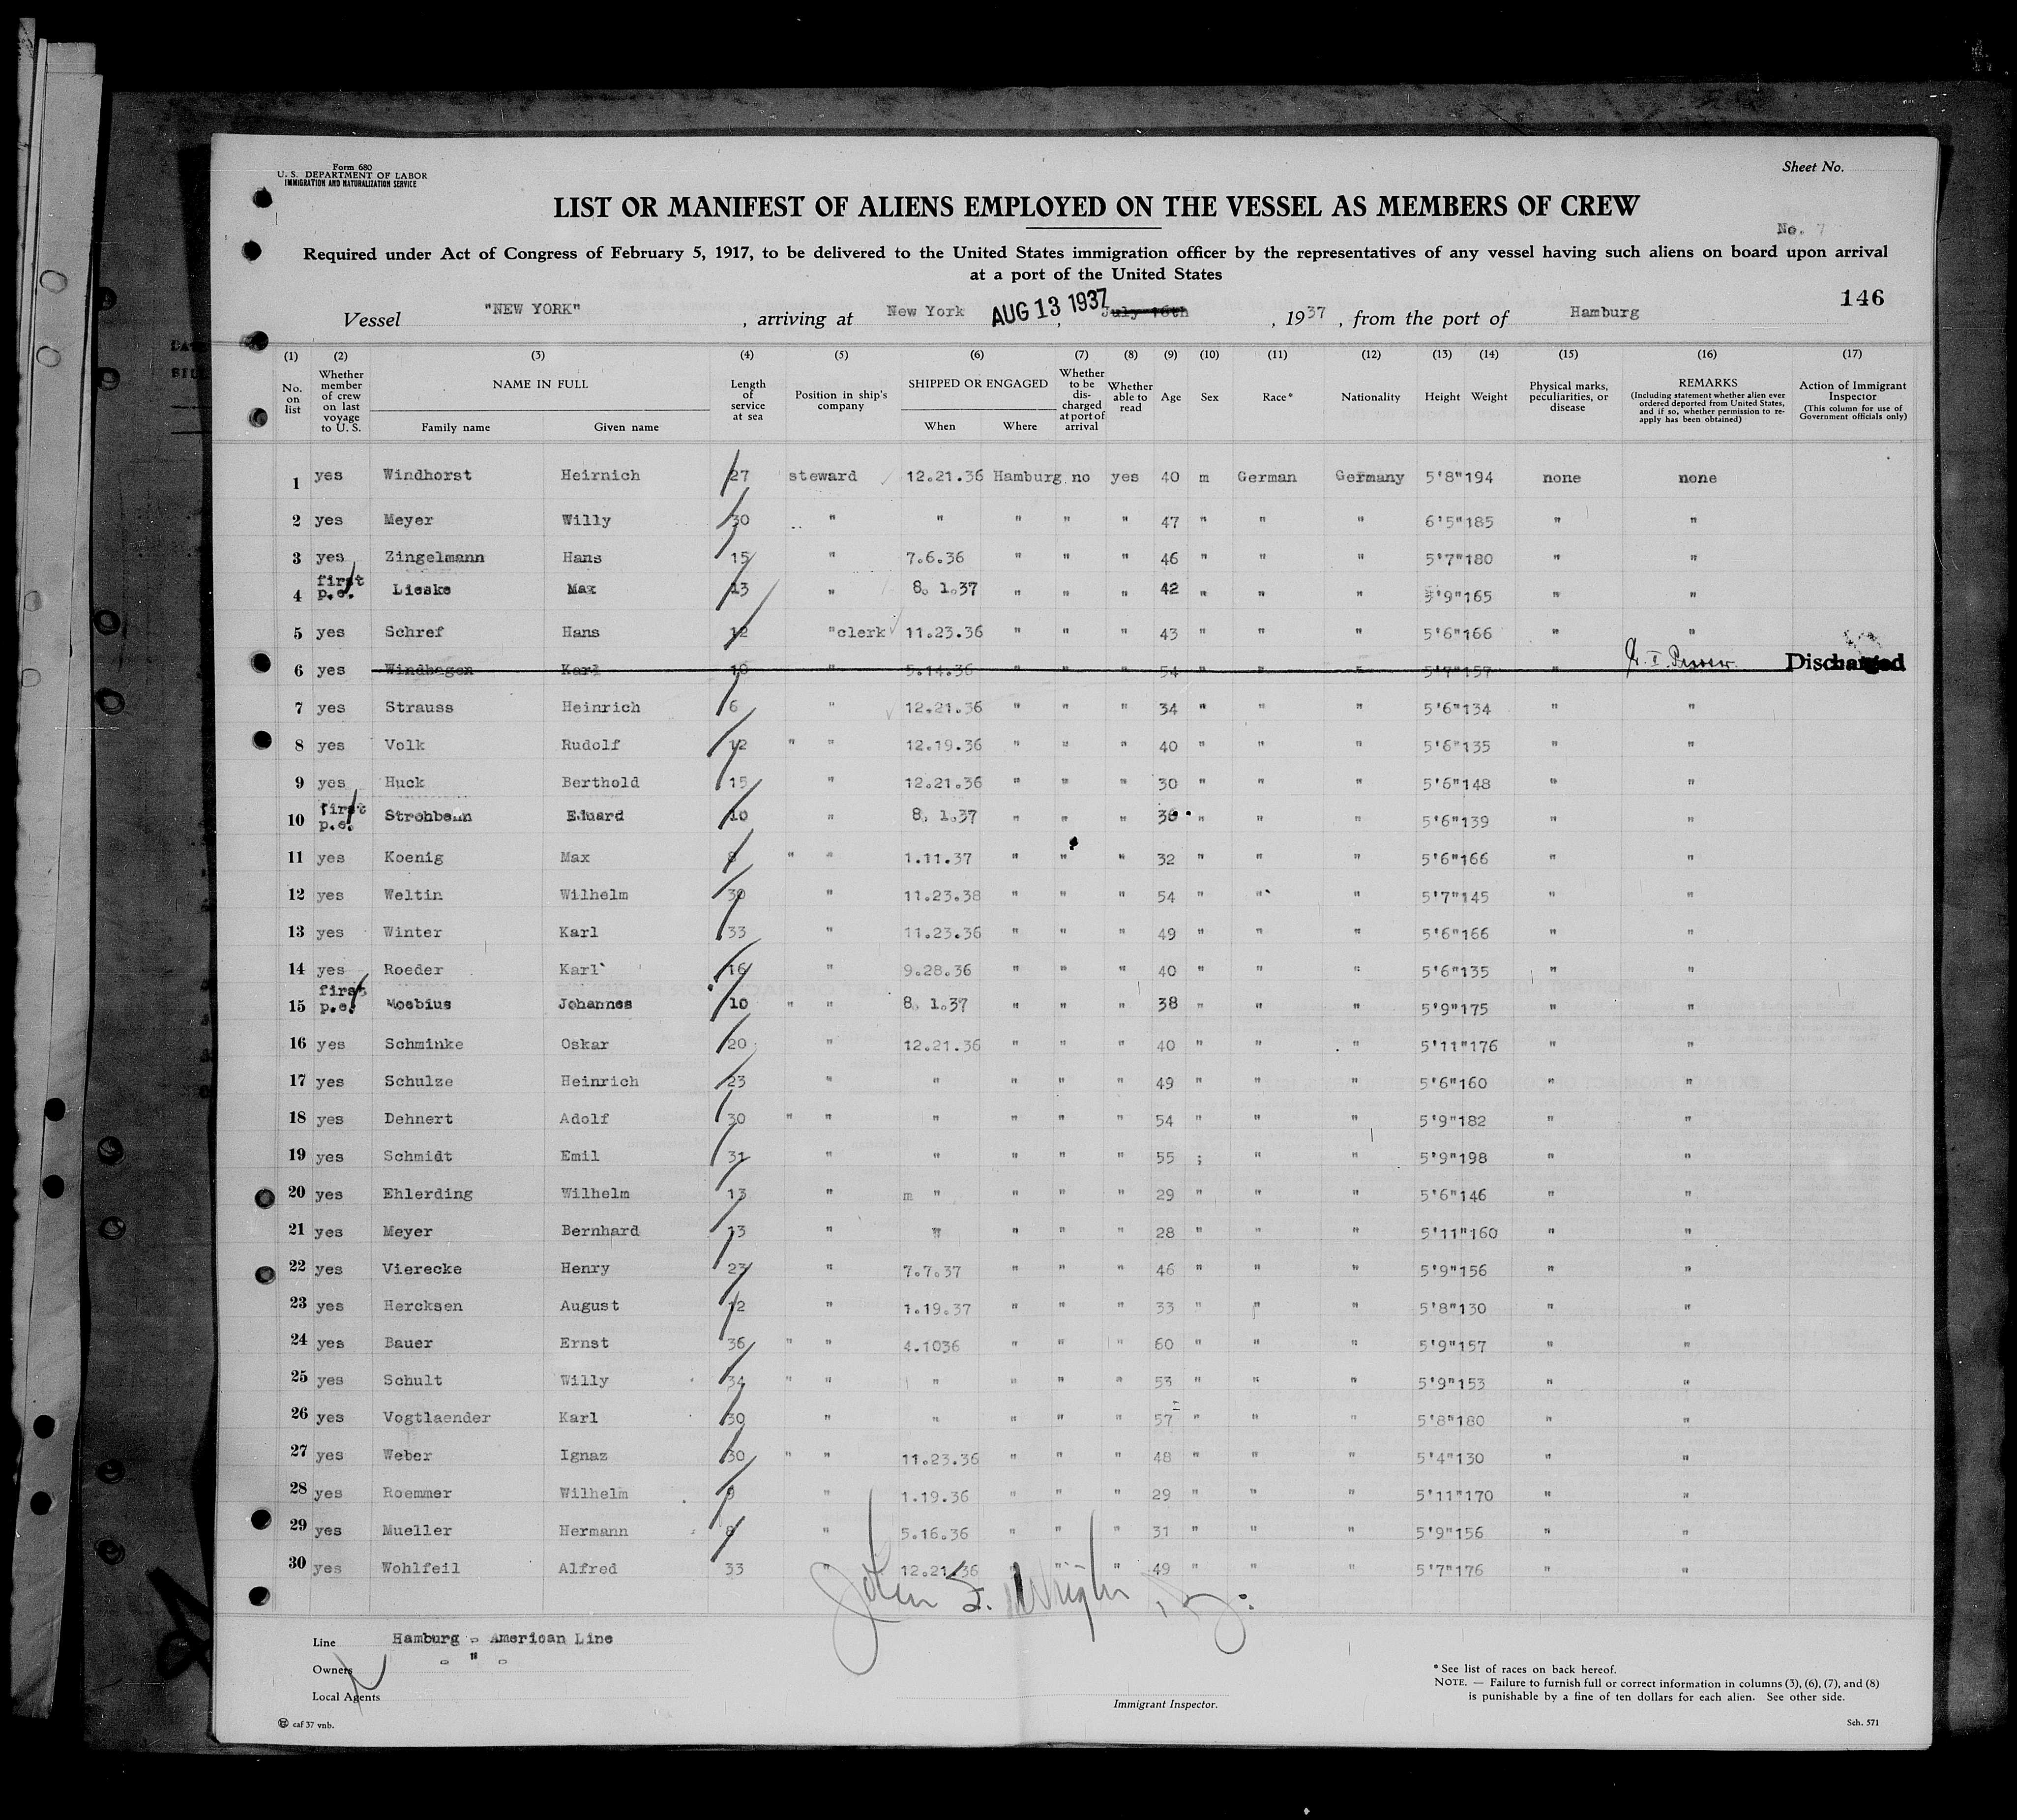 Form 680
U. S. DEPARTMENT OF LABOR
IMMIGRATION AND NATURALIZATION SERVICE
Sheet No.
LIST OR MANIFEST OF ALIENS EMPLOYED ON THE VESSEL AS MEMBERS OF CREW
No. 7
Required under Act of Congress of February 5, 1917, to be delivered to the United States immigration officer by the representatives of any vessel having such aliens on board upon arrival
at a port of the United States
146
Vessel "NEW YORK" , arriving at New York AUG 13 1937 , July 16th , 1937 , from the port of Hamburg
(1) (2) (3) (4) (5) (6) (7) (8) (9) (10) (11) (12) (13) (14) (15) (16) (17)
No. on list
Whether member of crew on last voyage to U. S.
NAME IN FULL
Family name Given name
Length of service at sea
Position in ship's company
SHIPPED OR ENGAGED
When Where
Whether to be discharged at port of arrival
Whether able to read
Age Sex Race* Nationality Height Weight
Physical marks, peculiarities, or disease
REMARKS
(Including statement whether alien ever ordered deported from United States, and if so, whether permission to reapply has been obtained)
Action of Immigrant Inspector
(This column for use of Government officials only)
1 yes Windhorst Heirnich 27 steward 12.21.36 Hamburg no yes 40 m German Germany 5'8" 194 none none
2 yes Meyer Willy 30 " " " " " 47 " " " 6'5" 185 " "
3 yes Zingelmann Hans 15 " 7.6.36 " " " 46 " " " 5'7" 180 " "
4 first p.e. Lieske Max 13 " 8. 1.37 " " " 42 " " " 5'9" 165 " "
5 yes Schref Hans 12 "clerk 11.23.36 " " " 43 " " " 5'6" 166 " "
6 yes Windhagen Karl 10 " 5.14.36 " " " 54 " " " 5'7" 157 " Discharged
7 yes Strauss Heinrich 6 " 12.21.36 " " " 34 " " " 5'6" 134 " "
8 yes Volk Rudolf 12 " " 12.19.36 " " " 40 " " " 5'6" 135 " "
9 yes Huck Berthold 15 " 12.21.36 " " " 30 " " " 5'6" 148 " "
10 first p.e. Strohbehn Eduard 10 " 8. 1.37 " " " 36 " " " 5'6" 139 " "
11 yes Koenig Max 8 " " 1.11.37 " " " 32 " " " 5'6" 166 " "
12 yes Weltin Wilhelm 30 " 11.23.38 " " " 54 " " " 5'7" 145 " "
13 yes Winter Karl 33 " 11.23.36 " " " 49 " " " 5'6" 166 " "
14 yes Roeder Karl 16 " 9.28.36 " " " 40 " " " 5'6" 135 " "
15 first p.e. Moebius Johannes 10 " " 8. 1.37 " " " 38 " " " 5'9" 175 " "
16 yes Schminke Oskar 20 " 12.21.36 " " " 40 " " " 5'11" 176 " "
17 yes Schulze Heinrich 23 " " " " " 49 " " " 5'6" 160 " "
18 yes Dehnert Adolf 30 " " " " " " 54 " " " 5'9" 182 " "
19 yes Schmidt Emil 31 " " " " " 55 ; " " 5'9" 198 " "
20 yes Ehlerding Wilhelm 13 " m " " " " 29 " " " 5'6" 146 " "
21 yes Meyer Bernhard 13 " " " " " 28 " " " 5'11" 160 " "
22 yes Vierecke Henry 23 " 7.7.37 " " " 46 " " " 5'9" 156 " "
23 yes Hercksen August 12 " 1.19.37 " " " 33 " " " 5'8" 130 " "
24 yes Bauer Ernst 36 " " 4.1036 " " " 60 " " " 5'9" 157 " "
25 yes Schult Willy 34 " " " " " " 53 " " " 5'9" 153 " "
26 yes Vogtlaender Karl 30 " " " " " 57 " " " 5'8" 180 " "
27 yes Weber Ignaz 30 " " 11.23.36 " " " 48 " " " 5'4" 130 " "
28 yes Roemmer Wilhelm 9 " 1.19.36 " " " 29 " " " 5'11" 170 " "
29 yes Mueller Hermann 8 " 5.16.36 " " " 31 " " " 5'9" 156 " "
30 yes Wohlfeil Alfred 33 " 12.21.36 " " " 49 " " " 5'7" 176 " "
John S. Wright
Line Hamburg - American Line
Owners - " -
Local Agents
Immigrant Inspector.
* See list of races on back hereof.
NOTE. — Failure to furnish full or correct information in columns (3), (6), (7), and (8)
is punishable by a fine of ten dollars for each alien. See other side.
caf 37 vnb.
Sch. 571